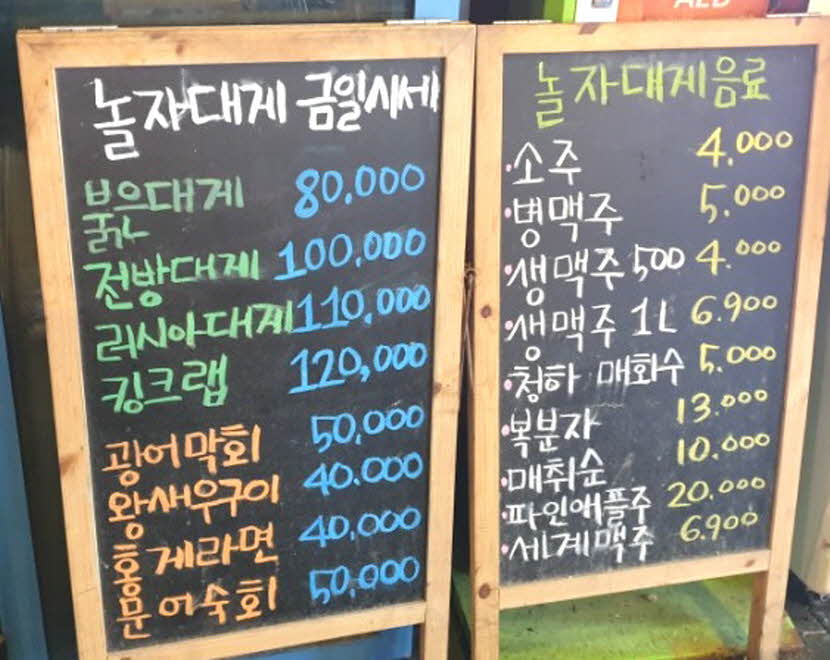 AED
놀자대게 금일시세
붉은대게 80,000
전방대게 100,000
러시아대게 110,000
킹크랩 120,000
광어막회 50,000
왕새우구이 40.000
홍게라면 40,000
문어숙회 50,000
놀자대게음료
·소주 4.000
·병맥주 5.000
·생맥주 500 4.000
·생맥주 1L 6.900
·청하 매화수 5.000
·복분자 13.000
·매취순 10.000
·파인애플주 20.000
·세계맥주 6.900